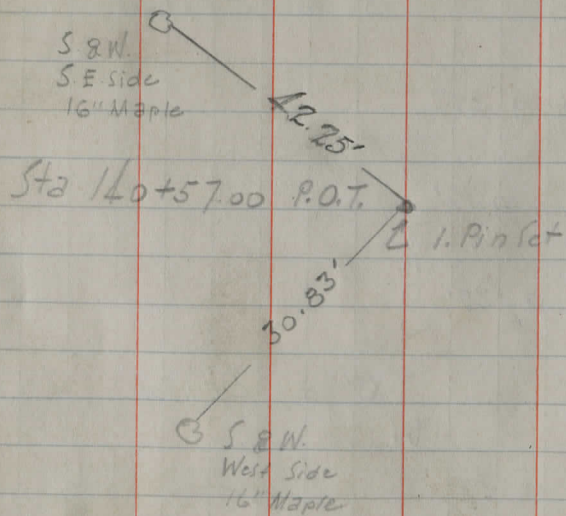 S & W.
S.E. Side
16" Maple
42.25'
Sta 140+57.00 P.O.T.
I. Pin Set
30.83'
S & W.
West Side
16" Maple